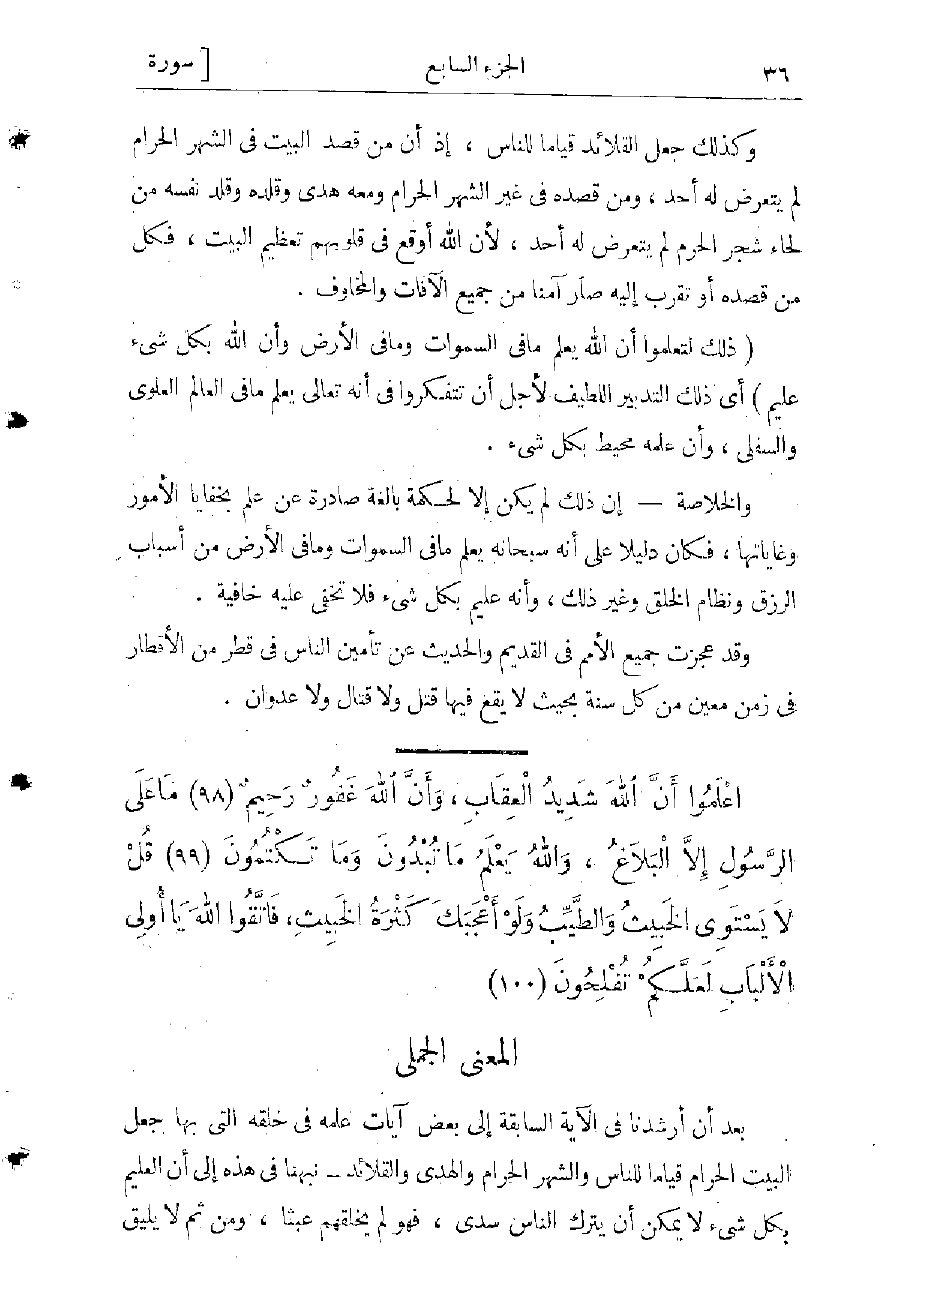 ٣٦ الجزء السابع [ سورة
وكذلك جعل القلائد قياما للناس ، إذ أن من قصد البيت فى الشهر الحرام
لم يتعرض له أحد ، ومن قصده فى غير الشهر الحرام ومعه هدى وقلده وقلد نفسه من
لحاء شجر الحرم لم يتعرض له أحد ، لأن الله أوقع فى قلوبهم تعظيم البيت ، فكل
من قصده أو تقرب إليه صار آمنا من جميع الآفات والمخاوف .
( ذلك لتعلموا أن الله يعلم مافى السموات ومافى الأرض وأن الله بكل شىء
عليم ) أى ذلك التدبير اللطيف لأجل أن تتفكروا فى أنه تعالى يعلم مافى العالم العلوى
والسفلى ، وأن علمه محيط بكل شىء .
والخلاصة — إن ذلك لم يكن إلا لحكمة بالغة صادرة عن علم بخفايا الأمور
وغاياتها ، فكان دليلا على أنه سبحانه يعلم مافى السموات ومافى الأرض من أسباب
الرزق ونظام الخلق وغير ذلك ، وأنه عليم بكل شىء فلا تخفى عليه خافية .
وقد عجزت جميع الأمم فى القديم والحديث عن تأمين الناس فى قطر من الأقطار
فى زمن معين من كل سنة بحيث لا يقع فيها قتل ولا قتال ولا عدوان .
اعْلَمُوا أَنَّ اللهَ شَدِيدُ الْعِقَابِ ، وَأَنَّ اللهَ غَفُورٌ رَحِيمٌ (٩٨) مَا عَلَى
الرَّسُولِ إِلاَّ الْبَلاَغُ ، وَاللهُ يَعْلَمُ مَا تُبْدُونَ وَمَا تَكْتُمُونَ (٩٩) قُلْ
لاَ يَسْتَوِى الخَبِيثُ وَالطَّيِّبُ وَلَوْ أَعْجَبَكَ كَثْرَةُ الخَبِيثِ، فَاتَّقُوا اللهَ يَا أُولِى
الْأَلْبَابِ لَعَلَّكُمْ تُفْلِحُونَ (١٠٠)
المعنى الجملى
بعد أن أرشدنا فى الآية السابقة إلى بعض آيات علمه فى خلقه التى بها جعل
البيت الحرام قياما للناس والشهر الحرام والهدى والقلائد ــ نبهنا فى هذه إلى أن العليم
بكل شىء لا يمكن أن يترك الناس سدى ، فهو لم يخلقهم عبثا ، ومن ثم لا يليق